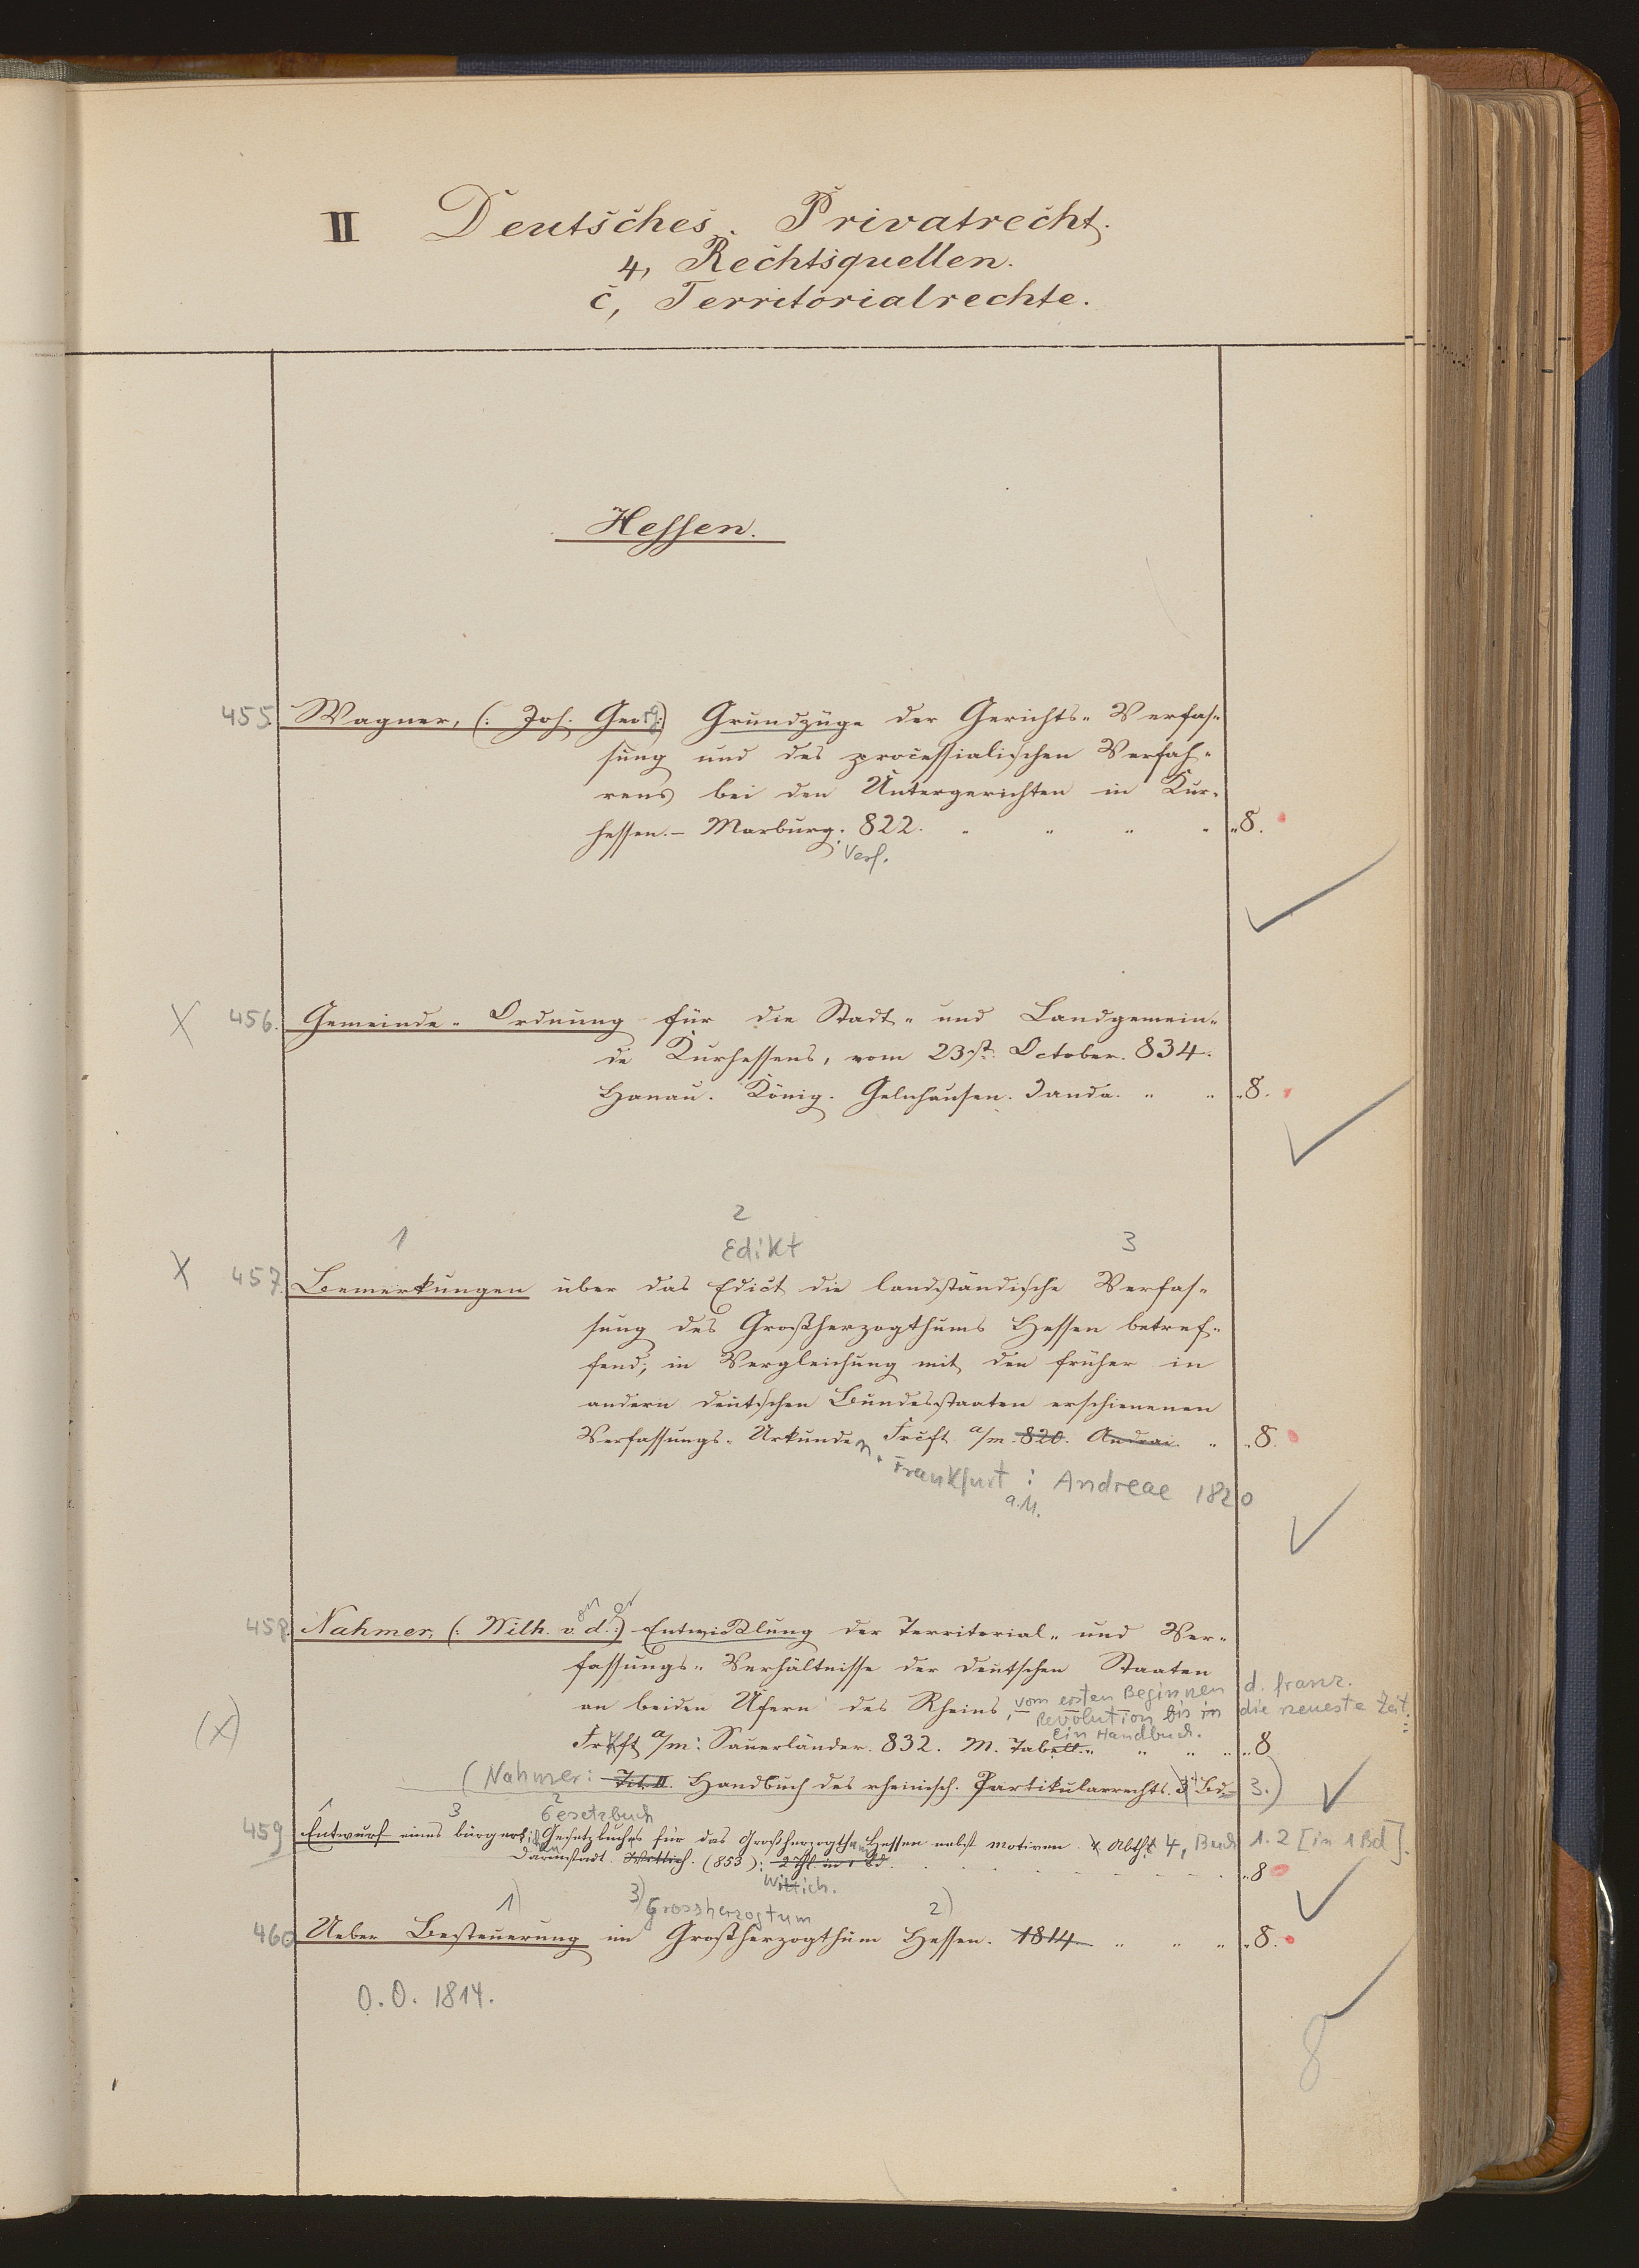 II Deutsches Privatrecht.
4, Rechtsquellen.
c, Territorialrechte.
Hessen.
455. Wagner, (: Joh. Georg:) Grundzüge der Gerichts- Verfas-
sung und des processialischen Verfah-
rens bei den Untergerichten in Kur-
hessen. – Marburg: 822. " " " " "8.
Verf.
X 456. Gemeinde- Ordnung für die Stadt- und Landgemein-
de Kurhessens, vom 23st. October. 834.
Hanau. König. Gelnhausen. Janda. " " "8.
1 2 3
Edikt
X 457. Bemerkungen über das Edict die landständische Verfas-
sung des Großherzogthums Hessen betref-
fend, in Vergleichung mit den früher in
andern deutschen Bundesstaaten erschienenen
Verfassungs- Urkunden. Frcft a/m. 820. Andreai. " "8.
Frankfurt : Andreae 1820
a.M.
458. Nahmer, (: Wilh. von der:) Entwicklung der Territorial- und Ver-
fassungs- Verhältnisse der deutschen Staaten
an beiden Ufern des Rheins, vom ersten Beginnen d. franz.
Revolution bis in die neueste Zeit.
Ein Handbuch.
(X) Frkft a/m: Sauerländer. 832. M. Tabell. " " " " "8
(Nahmer: Tit. II. Handbuch des rheinisch. Partikularrechts. 3 Bd. 3.)
1 3 2
Gesetzbuch
459 Entwurf eines bürgerl. Gesetzbuches für das Großherzogthum Hessen nebst Motiven. Abth. 4, Buch 1.2 [in 1 Bd].
Darmstadt. Wittich. (853): 2 Thl. in 1 Bd. "8
Wittich.
1) 3) 2)
Grossherzogtum
460 Ueber Besteuerung im Großherzogthum Hessen. 1814. " " " "8.
O.O. 1814.
8